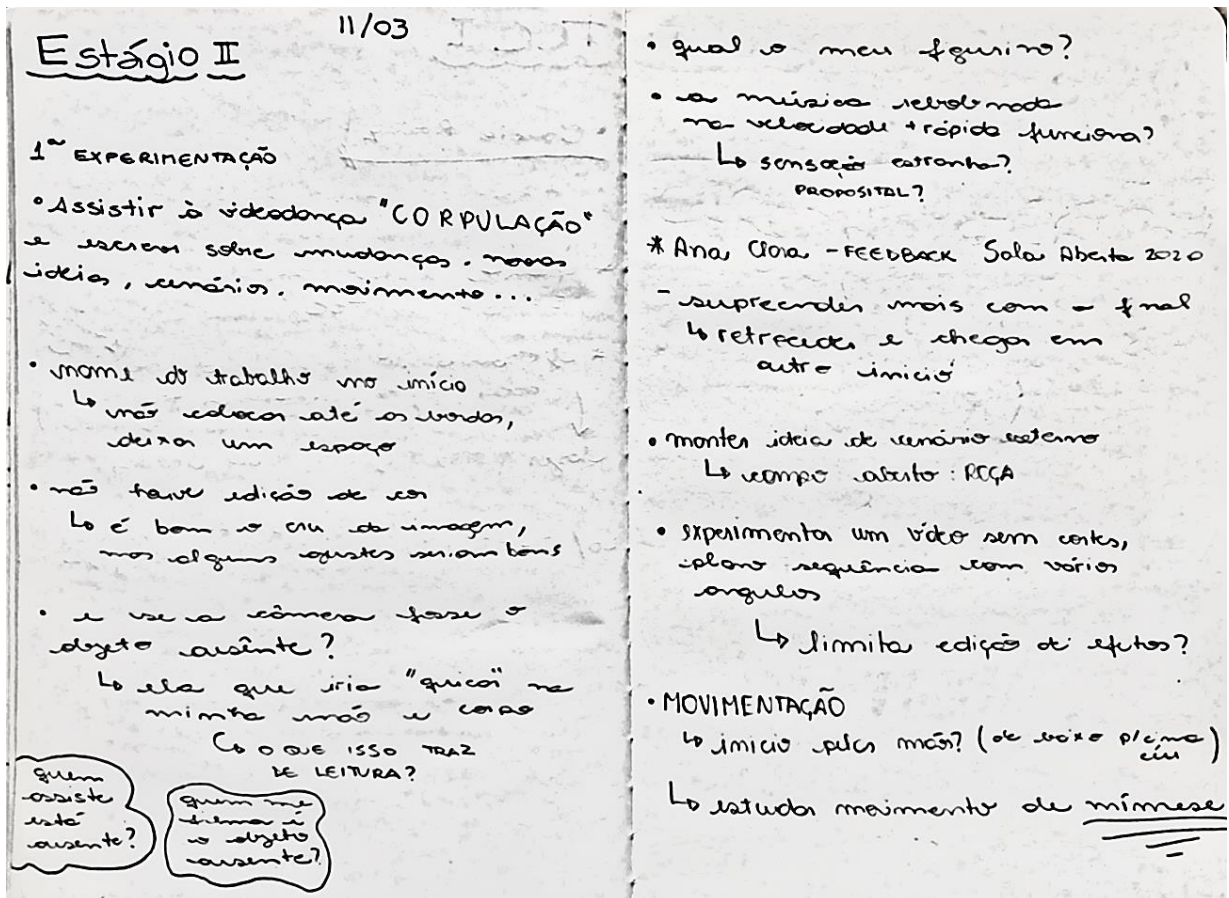 11/03
Estágio II
1ª EXPERIMENTAÇÃO
• Assistir à videodança "CORPULAÇÃO"
e escrever sobre mudanças, novas
ideias, cenários, movimento...
• nome do trabalho no início
↳ não colocar até as bordas,
deixar um espaço
• não houve edição de cor
↳ é bom o cru da imagem,
mas alguns ajustes seriam bons
• e se a câmera fosse o
objeto ausente?
↳ ela que iria "quicar" na
minha mão e corpo
↳ O QUE ISSO TRAZ
DE LEITURA?
quem
assiste
está
ausente?
quem me
filma é
o objeto
ausente?
• qual o meu figurino?
• a música rebobinada
na velocidade + rápida funciona?
↳ sensação estranha?
PROPOSITAL?
* Ana Clara - FEEDBACK Sala Aberta 2020
- supreender mais com o final
↳ retroceder e chegar em
outro início
• manter ideia de cenário externo
↳ campo aberto: ROÇA
• experimentar um vídeo sem cortes,
plano sequência com vários
angulos
↳ limita edição de efeitos?
• MOVIMENTAÇÃO
↳ início pelas mãos? (de baixo p/ cima
céu)
↳ estudar movimento de mímese